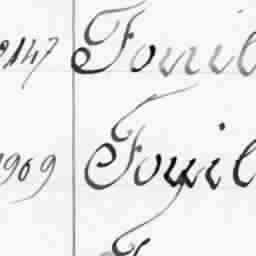 2147 Fouil
1909 Fouil